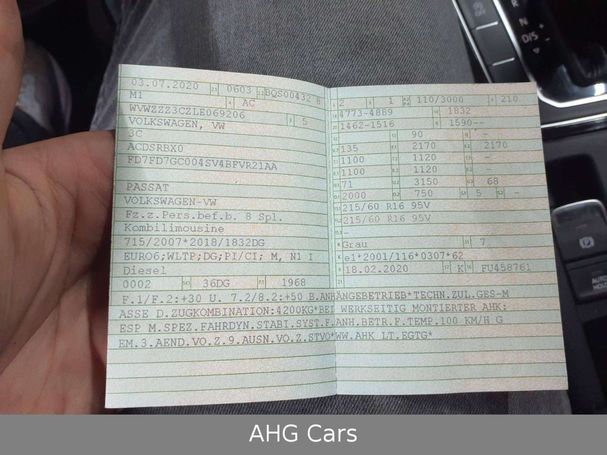 03.07.2020 0603 BQS00432 8
M1 AC
WVWZZZ3CZLE069206 5
VOLKSWAGEN, VW
3C
ACDSRBX0
FD7FD7GC004SV4BFVR21AA
PASSAT
VOLKSWAGEN-VW
Fz.z.Pers.bef.b. 8 Spl.
Kombilimousine
715/2007*2018/1832DG
EURO6;WLTP;DG;PI/CI; M, N1 I
Diesel
0002 36DG 1968
2 1 110/3000 210
4773-4889 1832
1462-1516 1590--
90 -
135 2170 2170
1100 1120 -
1100 1120
71 3150 68
2000 750 5 -
215/60 R16 95V
215/60 R16 95V
-
Grau 7
e1*2001/116*0307*62
18.02.2020 K FU458761
F.1/F.2:+30 U. 7.2/8.2:+50 B.ANHÄNGEBETRIEB*TECHN.ZUL.GES-M
ASSE D.ZUGKOMBINATION:4200KG*BEI WERKSEITIG MONTIERTER AHK:
ESP M.SPEZ.FAHRDYN.STABI.SYST.F.ANH.BETR.F.TEMP.100 KM/H G
EM.3.AEND.VO.Z.9.AUSN.VO.Z.STVO*WW.AHK LT.EGTG*
R
N
D/S
AUTO
HOLD
AHG Cars